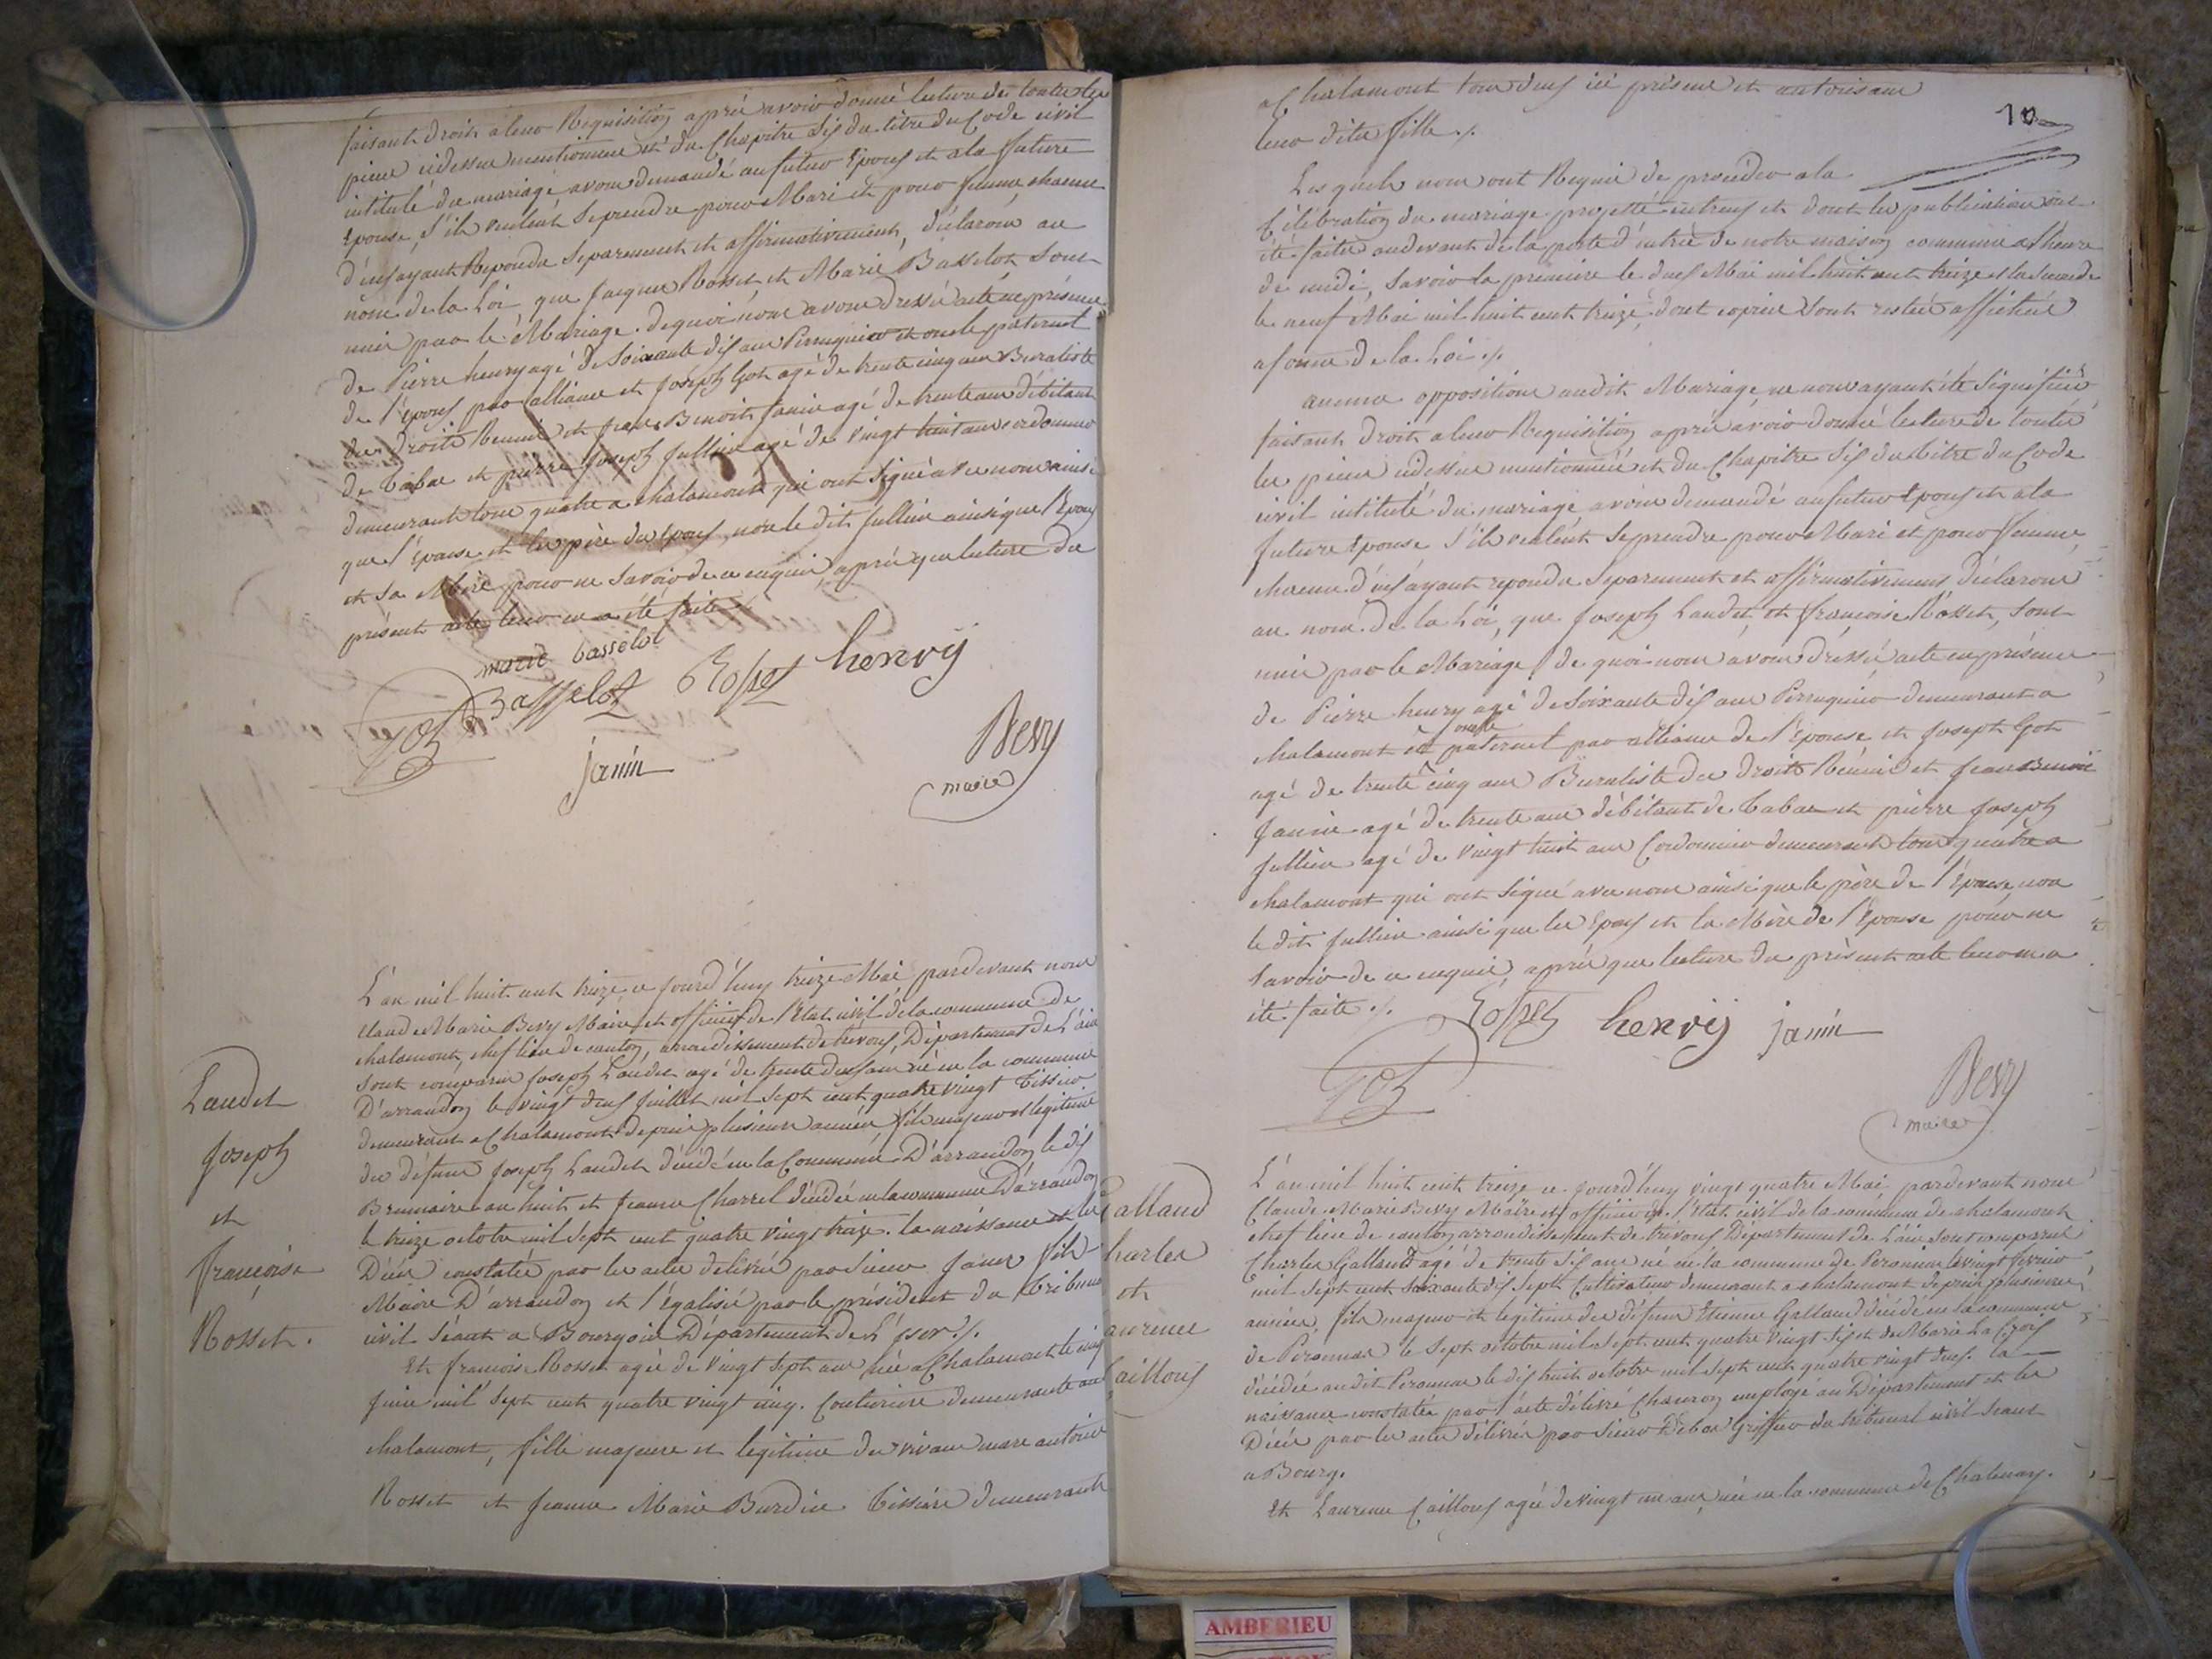 faisant droit a leur Requisition aprés avoir donné lecture de toutes les
pieces cidessus mentionnées et du Chapitre Six du titre du Code civil
intitulé du mariage avons demandé au futur Epoux et a la future
Epouse, s'ils veulent se prendre pour Mari et pour femme, chacun
d'eux ayant Repondu Separement et affirmativement, déclarons au
nom de la Loi que Jacques Rosset et Marie Basselot sont
unis par le Mariage. de quoi nous avons dressé acte en présence
de Pierre henry agé de Soixante dix ans Perruquier et oncle paternel
de l'époux par alliance et Joseph Got agé de trente cinq ans Buraliste
des droits Reunis et Jean Benoit Janin agé de trente ans débitant
de tabac et pierre Joseph Jullien agé de vingt huit ans cordonnier
demeurants tous quatre a chalamont qui ont Signé avec nous ainsi
que l'épouse et les père des époux, non le dit Jullien ainsi que l'Epoux
et sa Mère pour ne Savoir de ce enquis, aprés que lecture du
présent acte leur en a été faite
marie basselot
Basselot Rosset henry
Got
janin
Bevy
maire
Laudet
Joseph
et
françoise
Rosset.
L'an mil huit cent treize ce jourd'huy treize Mai, pardevant nous
Claude Marie Bevy Maire et officier de l'Etat civil de la commune de
chalamont, chef lieu de canton, arrondissement de trévoux, Département de L'ain
Sont comparus Joseph Laudet agé de trente deux ans né en la commune
D'arrandon le vingt deux Juillet mil sept cent quatre vingt Tissier
demeurant a Chalamont depuis plusieurs années fils majeur et legitime
des défunts Joseph Laudet décédé en la Commune D'arrandon le dix
Brumaire an huit et Jeanne Charrel décédée en la commune D'arrandon
le treize octobre mil sept cent quatre vingt treize. la naissance et les
Décés constatés par les actes delivrés par Sieur fils
Maire D'arrandon et légalisés par le président du tribunal
civil Séant a Bourgoin Département de L'iser ./.
Et françoise Rosset agée de vingt sept ans née a Chalamont le cinq
Juin mil sept cent quatre vingt cinq. Couturiere demeurante au
chalamont, fille majeure et legitime des vivans marc antoine
Rosset et Jeanne Marie Burdin Tissiers demeurants
10
a Chalamont tous deux ici présens et autorisant
leur dite fille ./.
Lesquels nous ont Requis de proceder a la
Célébration du mariage projetté entreux et dont les publications ont
été faites audevant de la porte d'entrée de notre maison commune a l'heure
de midi, Savoir la premiere le deux Mai mil huit cent treize et la Seconde
le neuf Mai mil huit cent treize, dont copies sont restées affichées
a forme de la Loi ./.
aucune opposition audit Mariage ne nous ayant été Signifiée,
faisant droit a leur Requisition aprés avoir donné lecture de toutes
les pieces cidessus mentionnées et du Chapitre Six du titre du Code
civil intitulé du mariage avons demandé au futur Epoux et a la
future Epouse s'ils veulent se prendre pour Mari et pour femme,
chacun d'eux ayant repondu Separement et affirmativement, déclarons
au nom de la Loi, que Joseph Laudet et françoise Rosset, sont
unis par le Mariage, de quoi nous avons dressé acte en présence
de Pierre henry agé de Soixante dix ans Perruquier demeurant a
chalamont et oncle paternel par alliance de l'Epouse et Joseph Got
agé de trente cinq ans Buraliste des droits Réunis et Jean Benoit
Janin agé de trente ans débitant de tabac et pierre Joseph
Jullien agé de vingt huit ans Cordonnier demeurants tous quatre a
chalamont qui ont Signé avec nous ainsi que le père de l'épouse, non
le dit Jullien ainsi que les Epoux et la Mère de l'Epouse pour ne
Savoir de ce enquis, aprés que lecture du présent acte leur en a
été faite ./.
Rosset henry janin
Got
Bevy
maire
Galland
harles
et
aurence
Cailloux
L'an mil huit cent treize ce jourd'huy vingt quatre Mai, pardevant nous
Claude Marie Bevy Maire et officier de l'Etat civil de la commune de chalamont
chef lieu de canton arrondissement de trévoux Département de L'ain sont comparus
Charles Galland agé de trente Six ans né en la commune de Peronnas le vingt fevrier
mil sept cent soixante dix sept Cultivateur demeurant a chalamont depuis plusieurs
années, fils majeur et legitime des défunts Etienne Galland décédé en la commune
de Peronnas le sept octobre mil sept cent quatre vingt six et de Marie La Croix
décédée audit Peronnas le dix huit octobre mil sept cent quatre vingt deux. la
naissance constatée par l'acte délivré Chauron employé au Département et les
Décés par les actes délivrés par Sieur Debar Greffier du tribunal civil Séant
a Bourg.
Et Laurence Cailloux agée de vingt un ans, née en la commune de Chatenay.
AMBERIEU